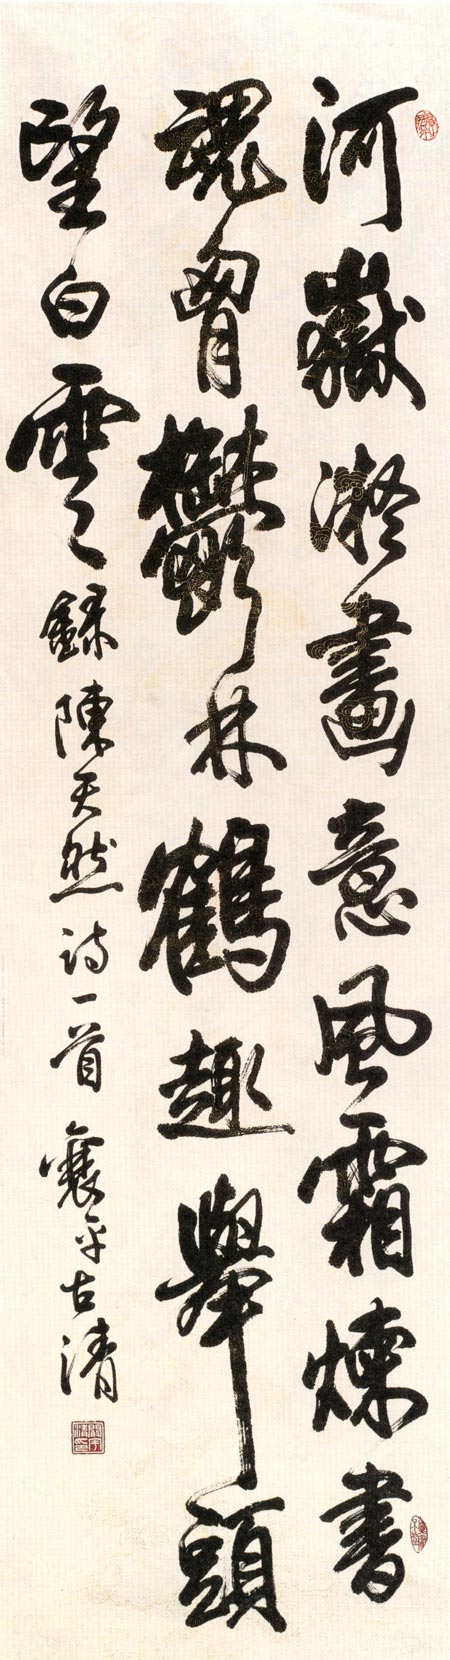 河嶽凝畫意風霜煉書
魂胷鬱林鶴趣舉頭
望白雲錄陳天然詩一首襄平古清